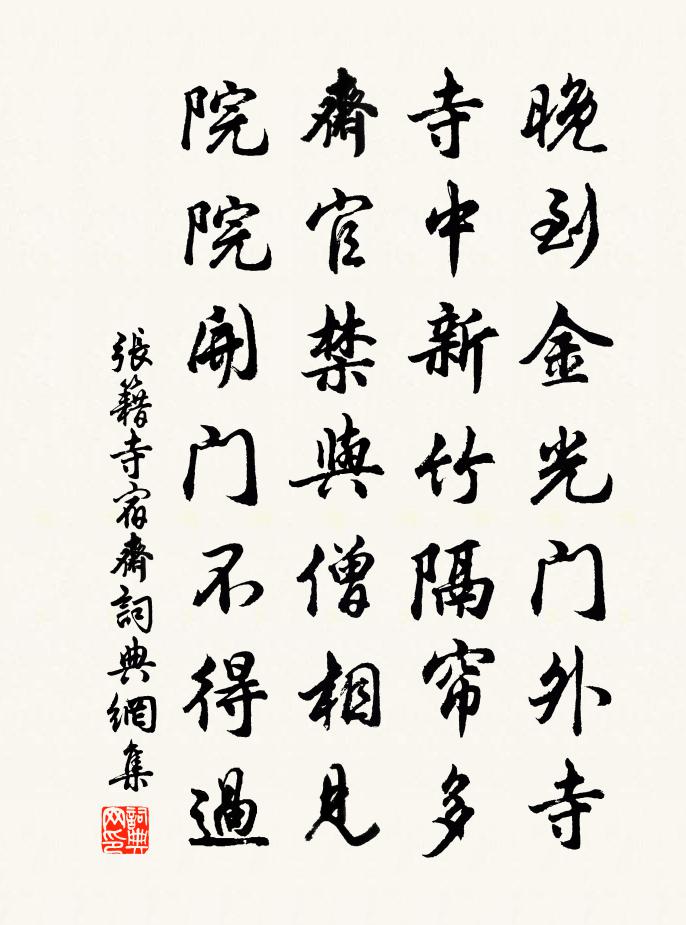 晚到金光门外寺
寺中新竹隔帘多
齋官禁與僧相見
院院開门不得過
張籍寺宿齋詞典網集
詞典网印